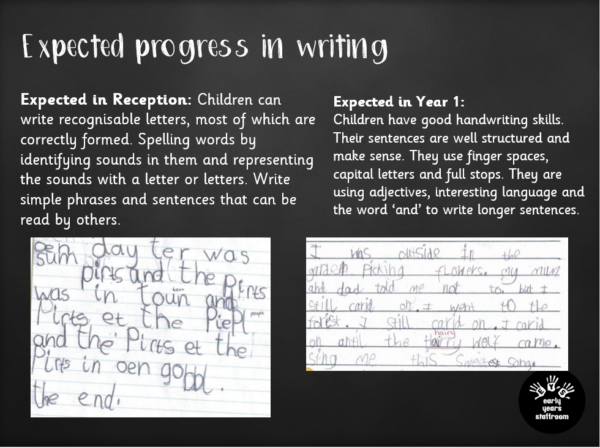 Expected progress in writing
Expected in Reception: Children can
write recognisable letters, most of which are
correctly formed. Spelling words by
identifying sounds in them and representing
the sounds with a letter or letters. Write
simple phrases and sentences that can be
read by others.
sum day ter was
pirts and the pirts
was in toun and
Pirts et the Piepl
people
and the Pirts et the
Pirts in oen gobbl.
the end.
Expected in Year 1:
Children have good handwriting skills.
Their sentences are well structured and
make sense. They use finger spaces,
capital letters and full stops. They are
using adjectives, interesting language and
the word ‘and’ to write longer sentences.
I was outside in the
picking flowers. my mum
and dad told me not to. but I
still carid on. I went to the
forist. I still carid on. I carid
hairy
on until the harry wolf came.
sing me this sweetest song.
early
years
staffroom